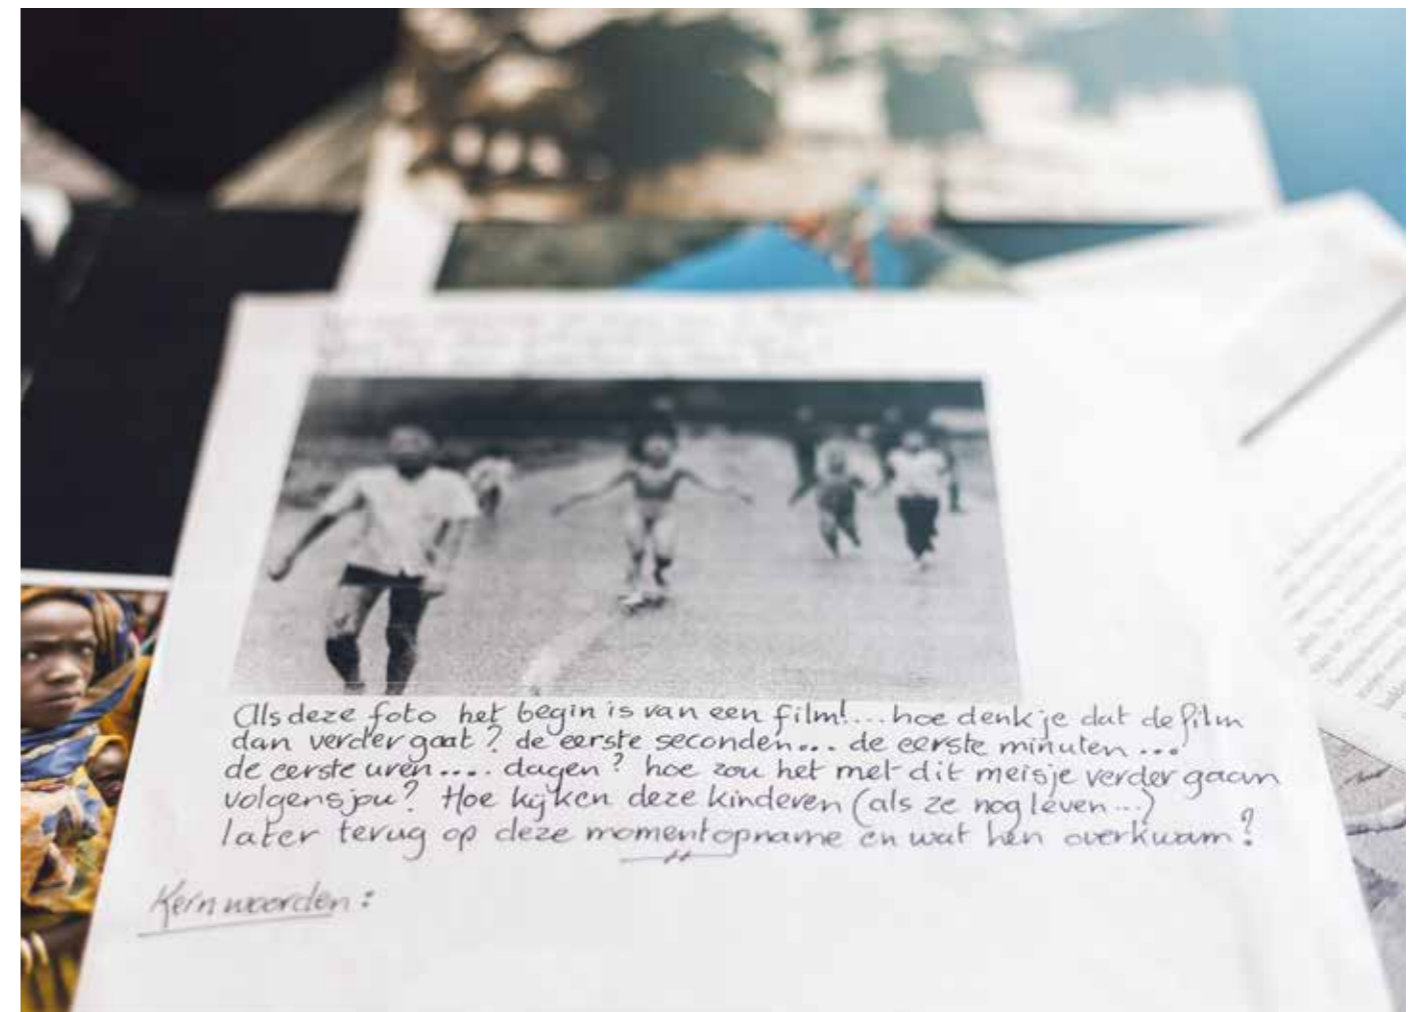 Als deze foto het begin is van een film!... hoe denk je dat de film
dan verder gaat? de eerste seconden... de eerste minuten ...
de eerste uren.... dagen? hoe zou het met dit meisje verder gaan
volgens jou? Hoe kijken deze kinderen (als ze nog leven...)
later terug op deze momentopname en wat hen overkwam?
Kernwoorden: